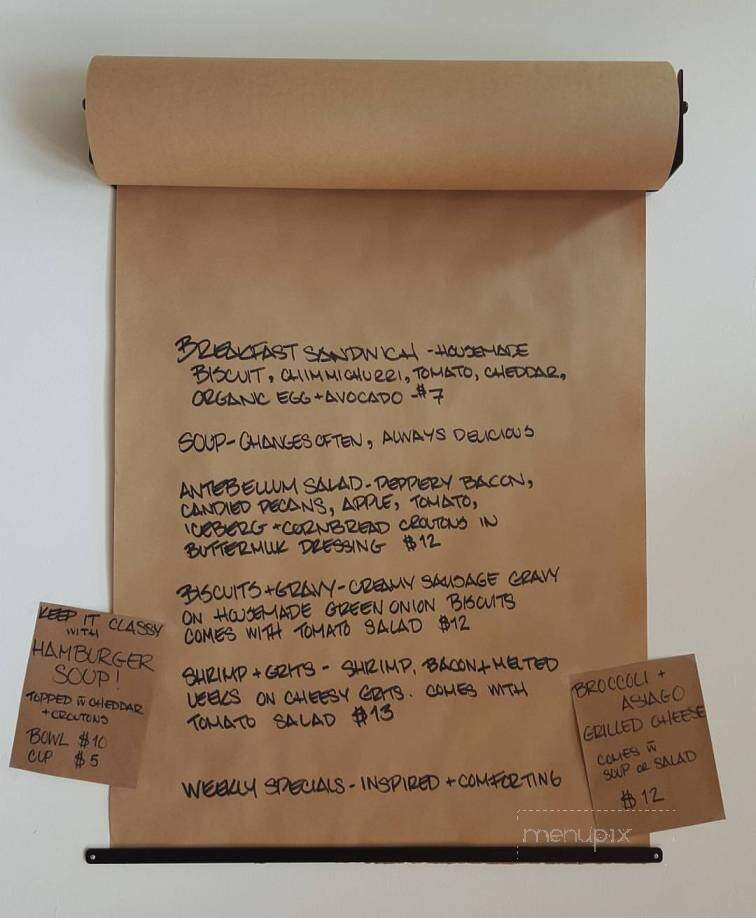 BREAKFAST SANDWICH - HOUSEMADE
BISCUIT, CHIMMICHURRI, TOMATO, CHEDDAR,
ORGANIC EGG + AVOCADO - $7
SOUP - CHANGES OFTEN, ALWAYS DELICIOUS
ANTEBELLUM SALAD - PEPPERY BACON,
CANDIED PECANS, APPLE, TOMATO,
ICEBERG + CORNBREAD CROUTONS IN
BUTTERMILK DRESSING $12
BISCUITS + GRAVY - CREAMY SAUSAGE GRAVY
ON HOUSEMADE GREEN ONION BISCUITS
COMES WITH TOMATO SALAD $12
SHRIMP + GRITS - SHRIMP, BACON + MELTED
LEEKS ON CHEESY GRITS. COMES WITH
TOMATO SALAD $13
WEEKLY SPECIALS - INSPIRED + COMFORTING
KEEP IT CLASSY
WITH
HAMBURGER
SOUP!
TOPPED w̄ CHEDDAR
+ CROUTONS
BOWL $10
CUP $5
BROCCOLI +
ASIAGO
GRILLED CHEESE
COMES w̄
SOUP OR SALAD
$12
menupix